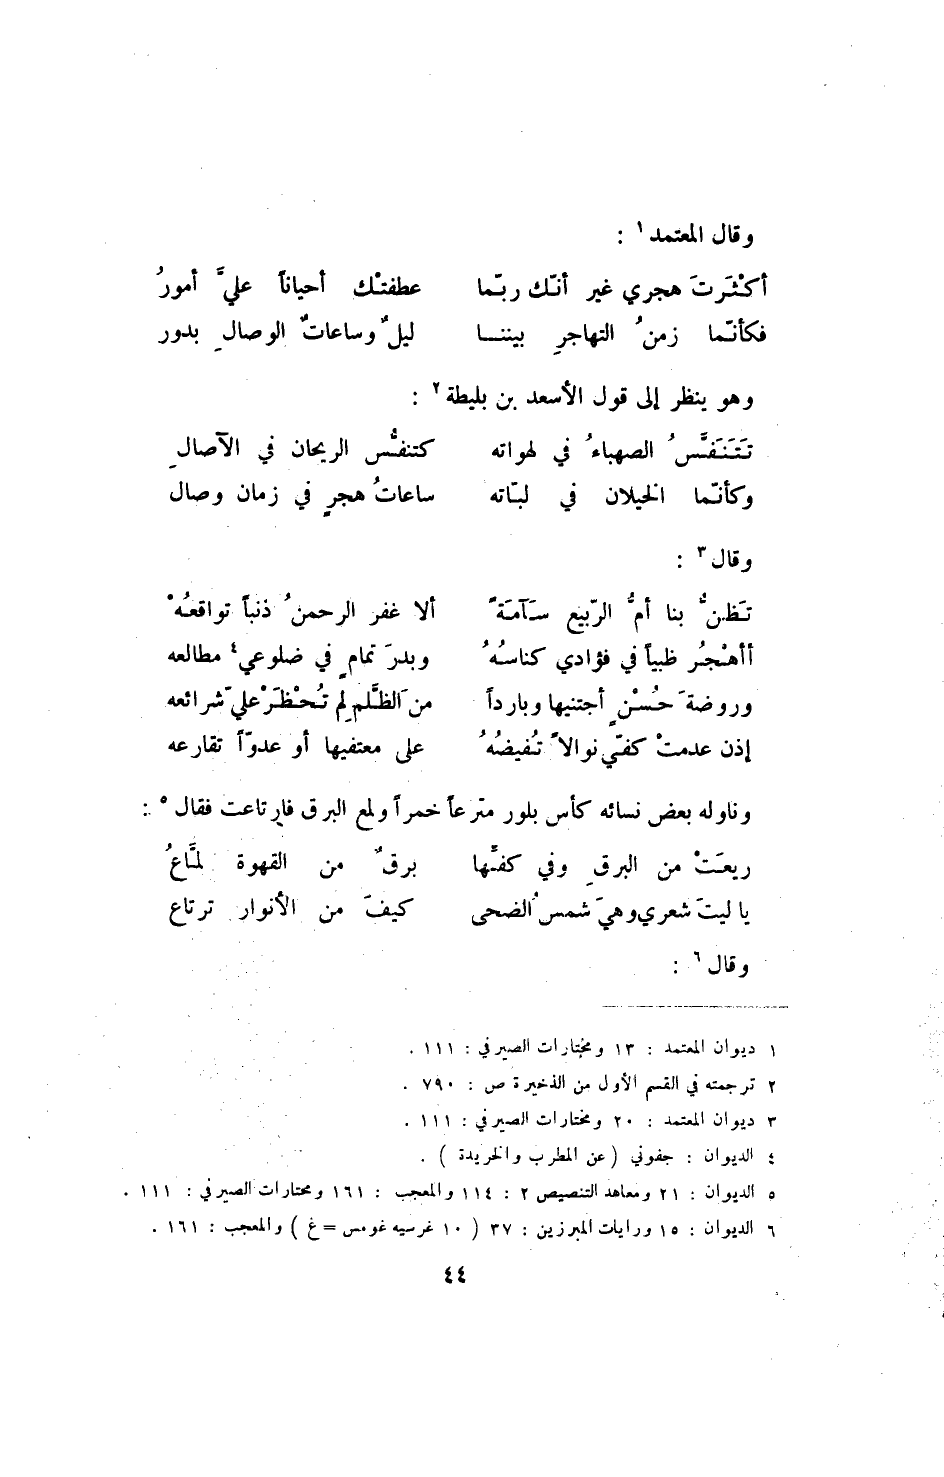 وقال المعتمد ١ :
أكْثَرتَ هجري غير أنّك ربّما عطفتْك أحياناً عليَّ أمورُ
فكأنّما زمنُ التهاجرِ بيننا ليلٌ وساعاتُ الوصالِ بدور
وهو ينظر إلى قول الأسعد بن بليطة ٢ :
تَتَنَفَّسُ الصهباءُ في لهواته كتنفُّس الريحان في الآصالِ
وكأنّما الخيلان في لبّاته ساعاتُ هجرٍ في زمان وصال
وقال ٣ :
تَظنُّ بنا أمُّ الرّبيع سَآمَةً ألا غفر الرحمنُ ذنباً تواقعُهْ
أأهْجُرُ ظبياً في فؤادي كناسُهُ وبدرَ تمامٍ في ضلوعي ٤ مطالعه
وروضةَ حُسْنٍ أجتنيها وبارداً من الظَّلمِ لم تُحْظَرْ عليّ شرائعه
إذن عدمتْ كفّي نوالاً تُفيضُهُ على معتفيها أو عدوّاً تقارعه
وناوله بعض نسائه كأس بلور مترعاً خمراً ولمع البرق فارتاعت فقال ٥ :
ريعَتْ من البرقِ وفي كفّها برقٌ من القهوة لمَّاعُ
يا ليتَ شعري وهيَ شمسُ الضحى كيفَ من الأنوار ترتاع
وقال ٦ :
١ ديوان المعتمد : ١٣ ومختارات الصيرفي : ١١١ .
٢ ترجمته في القسم الأول من الذخيرة ص : ٧٩٠ .
٣ ديوان المعتمد : ٢٠ ومختارات الصيرفي : ١١١ .
٤ الديوان : جفوني ( عن المطرب والخريدة ) .
٥ الديوان : ٢١ ومعاهد التنصيص ٢ : ١١٤ والمعجب : ١٦١ ومختارات الصيرفي : ١١١ .
٦ الديوان : ١٥ ورايات المبرزين : ٣٧ ( ١٠ غرسيه غومس = غ ) والمعجب : ١٦١ .
٤٤